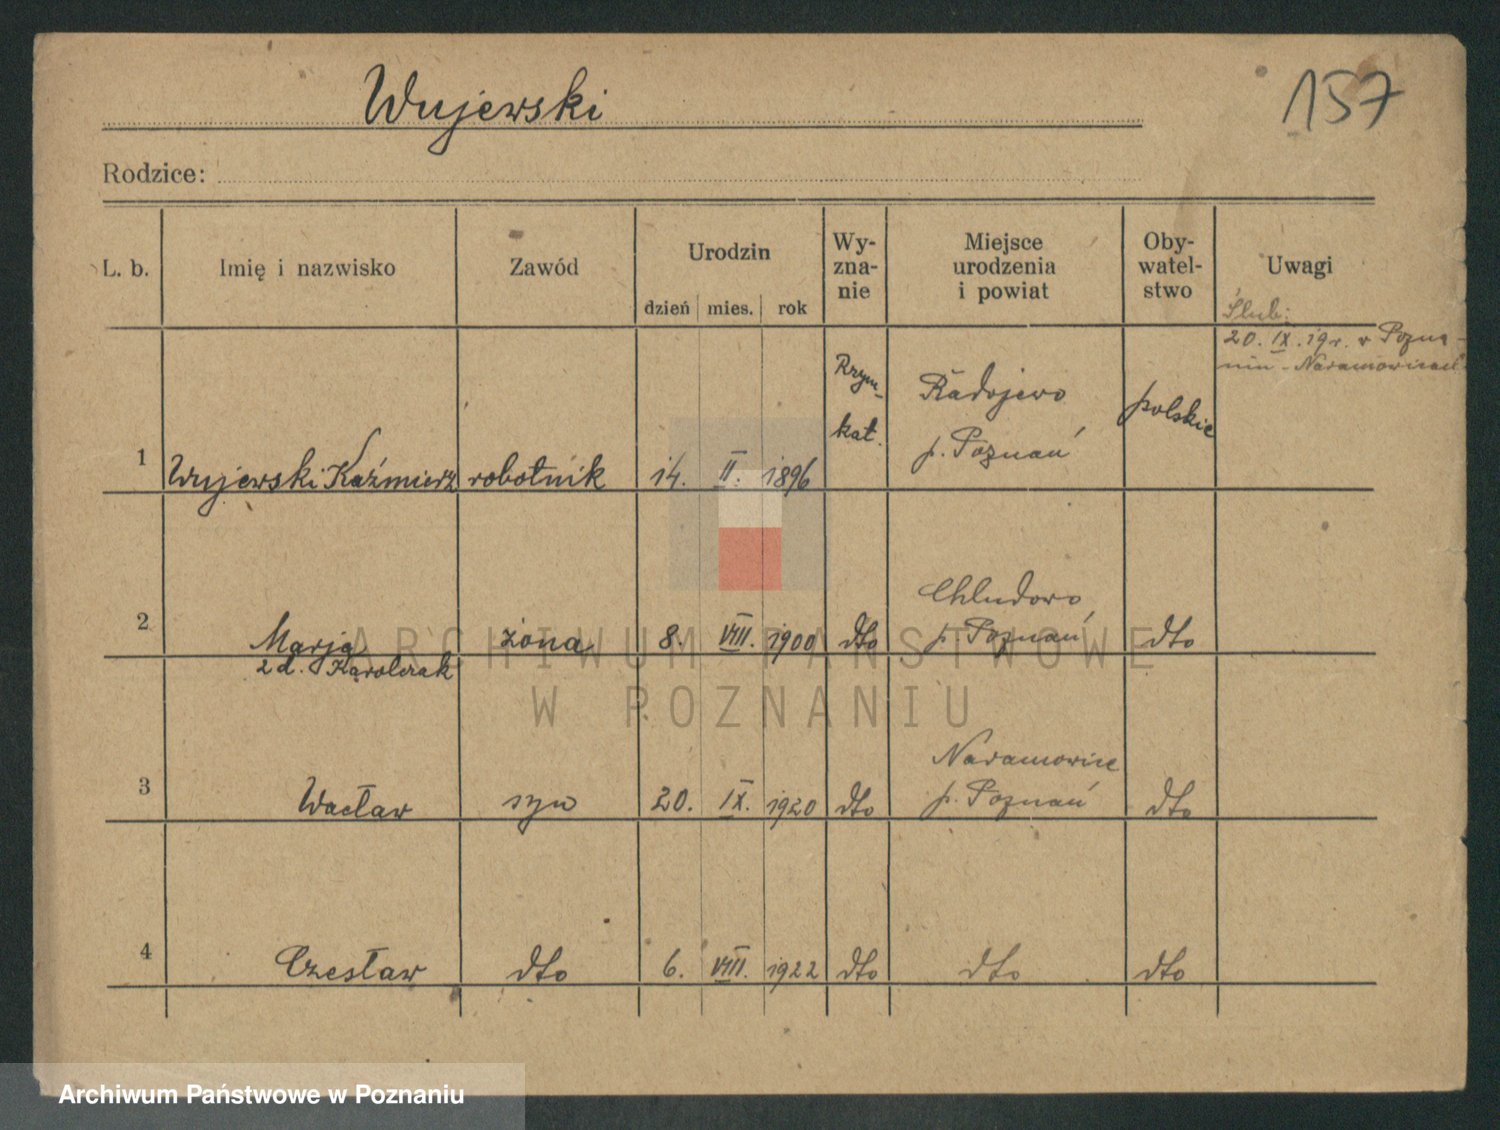 Wujewski
157
Rodzice:
L. b.
Imię i nazwisko
Zawód
Urodzin
dzień mies. rok
Wy-
zna-
nie
Miejsce
urodzenia
i powiat
Oby-
watel-
stwo
Uwagi
Ślub:
20. IX. 19 r. w Pozna-
niu - Naramowicach
1
Wujewski Kaźmierz
robotnik
14. II. 1896
Rzym-
kat.
Radojewo
p. Poznań
polskie
2
Marja
z d. Karolczak
żona
8. VIII. 1900
dto
Chludowo
p. Poznań
dto
3
Wacław
syn
20. IX. 1920
dto
Naramowice
p. Poznań
dto
4
Czesław
dto
6. VIII. 1922
dto
dto
dto
ARCHIWUM PAŃSTWOWE
W POZNANIU
Archiwum Państwowe w Poznaniu